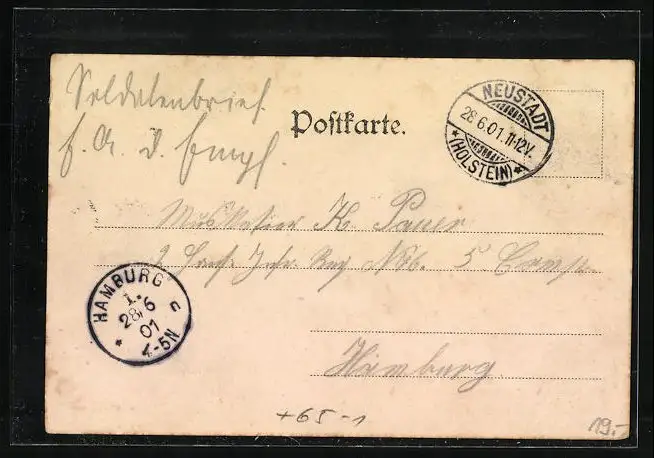 Soldatenbrief
Postkarte.
NEUSTADT
28.6.01.11-12V.
*(HOLSTEIN)*
Musketier K.
2 Hans. Inf. Reg No 5 Comp.
HAMBURG
1.
28/6
01
* 4-5N
n
Hamburg
+65-1
19.-